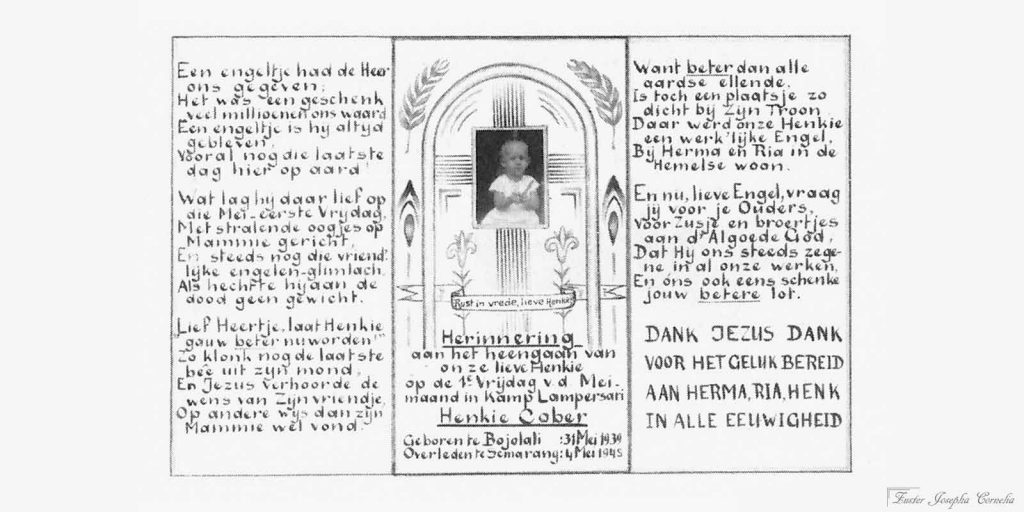 Een engeltje had de Heer
ons gegeven;
Het was een geschenk
veel millioenen ons waard
Een engeltje is hy altyd
gebleven,
Vooral nog die laatste
dag hier op aard!
Wat lag hy daar lief op
die Mei-eerste Vrydag,
Met stralende oogjes op
Mammie gericht,
En steeds nog die vriend'
lyke engelen-glimlach.
Als hechtte hy aan de
dood geen gewicht.
Lief Heertje, laat Henkie
"gauw beter nu worden!"
Zo klonk nog de laatste
beê uit zyn mond,
En Jezus verhoorde de
wens van Zyn vriendje,
Op andere wys dan zyn
Mammie wel vond.
Rust in vrede, lieve Henkie
Herinnering
aan het heengaan van
onze lieve Henkie
op de 1e Vrijdag v.d. Mei-
maand in Kamp Lampersari
Henkie Cober
Geboren te Bojolali :31 Mei 1939
Overleden te Semarang: 4 Mei 1945
Want beter dan alle
aardse ellende.
Is toch een plaatsje zo
dicht by Zyn Troon
Daar werd onze Henkie
een werk'lijke Engel,
By Herma en Ria in de
Hemelse woon.
En nu, lieve Engel, vraag
jy voor je Ouders,
Voor Zusje en broertjes
aan d' Algoede God,
Dat Hy ons steeds zege-
ne, in al onze werken,
En ons ook eens schenke
jouw betere lot.
DANK JEZUS DANK
VOOR HET GELUK BEREID
AAN HERMA, RIA, HENK
IN ALLE EEUWIGHEID
Euster Josepha Cornelia